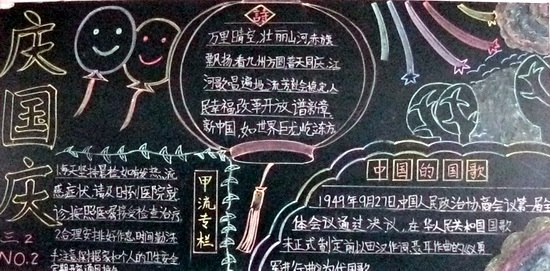 庆国庆
三.2
NO.2
诗
万里晴空,壮丽山河赤旗
飘扬看九州方圆普天同庆,江
河歌唱遍地流芳社会稳定人
民幸福,改革开放谱新章,
新中国,如世界巨龙屹东方
甲流专栏
1.每天坚持晨检,如有发热、流
感症状,请及时到医院就
诊,按照医嘱接受检查治疗
2.合理安排好作息时间勤洗
手注意保持
个人的卫生安全
中国的国歌
1949年9月27日中国人民政治协商会议第一届全
体会议通过决议,在华人民共和国国歌
未正式制定前以田汉作词聂耳作曲的《义勇
军进行曲》为代国歌